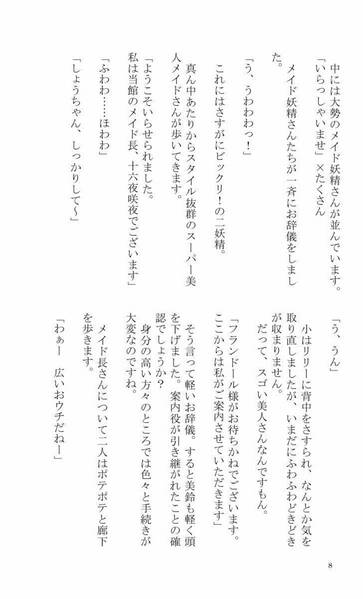 中には大勢のメイド妖精さんが並んでいます。
「いらっしゃいませ」×たくさん
メイド妖精さんたちが一斉にお辞儀をしまし
た。
「う、うわわわっ！」
これにはさすがにビックリ！の二妖精。
真ん中あたりからスタイル抜群のスーパー美
人メイドさんが歩いてきます。
「ようこそいらせられました。
私は当館のメイド長、十六夜咲夜でございます」
「ふわわ……ほわわ」
「しょうちゃん、しっかりして～」
「う、うん」
小はリリーに背中をさすられ、なんとか気を
取り直しましたが、いまだにふわふわどきどき
が収まりません。
だって、スゴい美人さんなんですもん。
「フランドール様がお待ちかねでございます。
ここからは私がご案内させていただきます」
そう言って軽いお辞儀。すると美鈴も軽く頭
を下げました。案内役が引き継がれたことの確
認でしょうか？
身分の高い方々のところでは色々と手続きが
大変なのですね。
メイド長さんについて二人はポテポテと廊下
を歩きます。
「わぁー　広いおウチだねー」
8